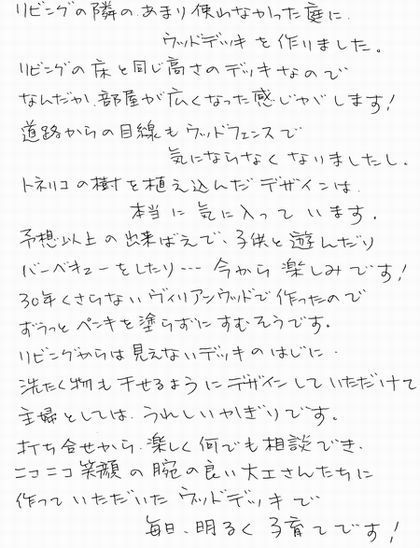 リビングの隣の、あまり使わなかった庭に、
ウッドデッキを作りました。
リビングの床と同じ高さのデッキなので
なんだか、部屋が広くなった感じがします!
道路からの目線もウッドフェンスで
気にならなくなりましたし、
トネリコの樹を植え込んだデザインは、
本当に気に入っています。
予想以上の出来ばえで、子供と遊んだり
バーベキューをしたり…今から楽しみです!
30年くさらないヴィリアンウッドで作ったので
ずうっとペンキを塗らずにすむそうです。
リビングからは見えないデッキのはじに、
洗たく物も干せるようにデザインしていただけて
主婦としては、うれしいかぎりです。
打ち合せから、楽しく何でも相談でき、
ニコニコ笑顔の腕の良い大工さんたちに
作っていただいたウッドデッキで
毎日、明るく子育てです!